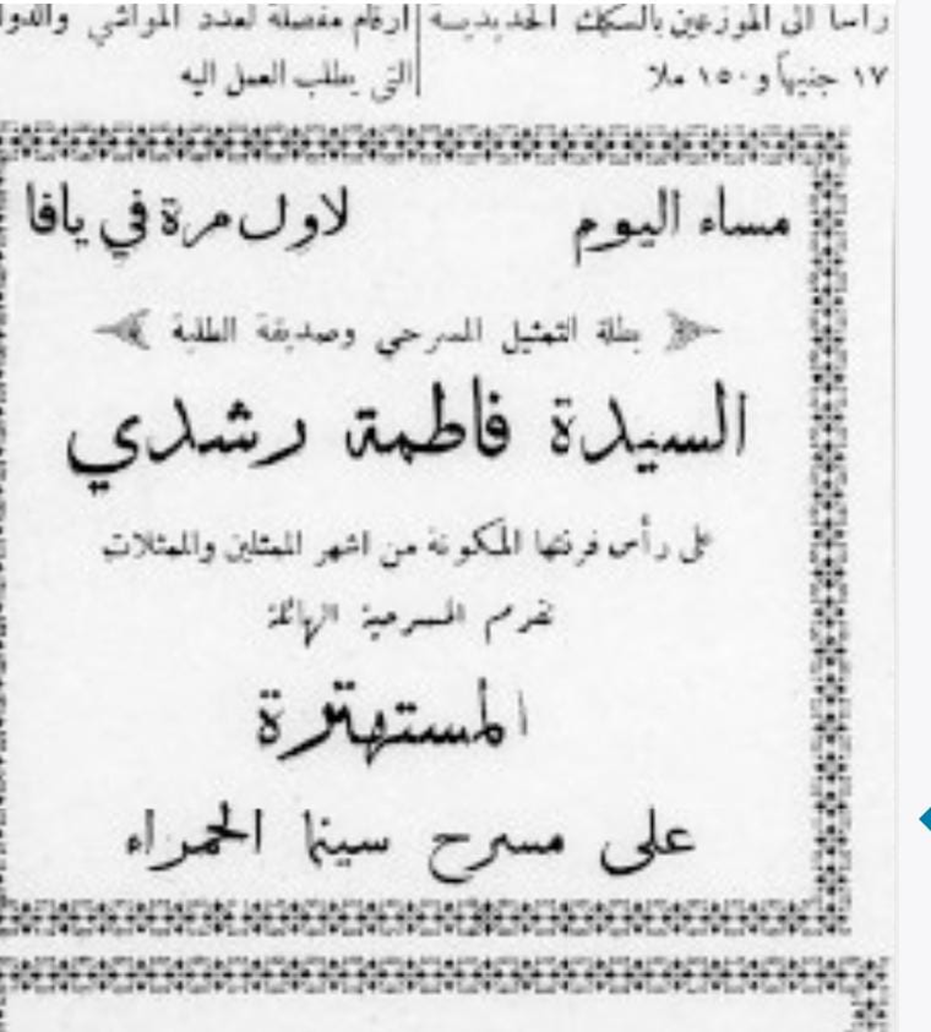 رأسا الى الموزعين بالسكك الحديدية
١٧ جنيهاً و ١٥٠ ملا
ارقام مفصلة لعدد المواشي والدوا
التي يطلب العمل اليه
مساء اليوم
لاول مرة في يافا
بطلة التمثيل المسرحي وصديقة الطلبة
السيدة فاطمة رشدي
على رأس فرقتها المكونة من اشهر الممثلين والممثلات
تقدم المسرحية الهائلة
المستهترة
على مسرح سينما الحمراء